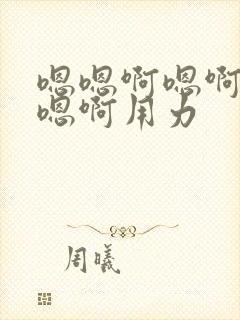 嗯嗯啊嗯啊
嗯啊用力
周曦